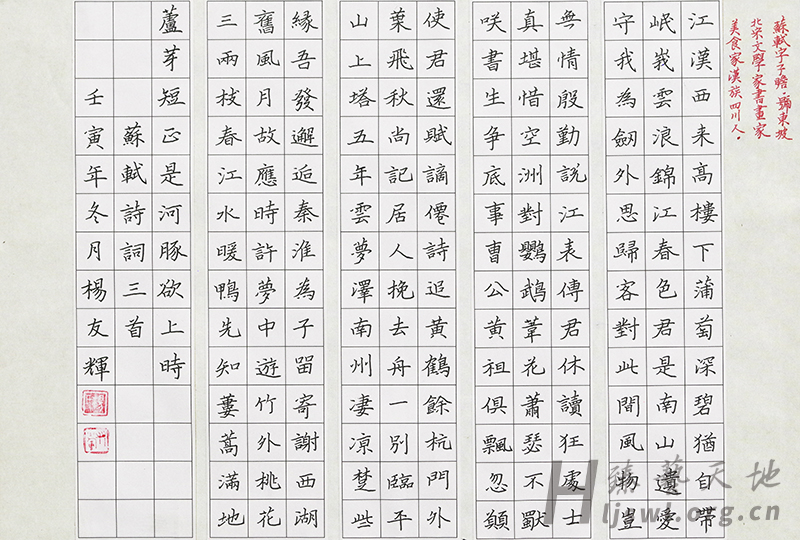 蘇軾字子瞻,號東坡
北宋文學家書畫家
美食家漢族四川人。
江漢西来高樓下蒲萄深碧猶自帶
岷峩雲浪錦江春色君是南山遺愛
守我為劒外思歸客對此間風物豈
無情殷勤說江表傳君休讀狂處士
真堪惜空洲對鸚鵡葦花蕭瑟不
咲書生争底事曹公黄祖俱飄忽
使君還賦謫僊詩追黄鶴餘杭門外
葉飛秋尚記居人挽去舟一別臨平
山上塔五年雲夢澤南州凄凉楚些
緣吾發邂逅秦淮為子畱寄謝西湖
舊風月故應時許夢中遊竹外桃花
三兩枝春江水暖鴨先知蔞蒿滿地
蘆芽短正是河豚欲上時
蘇軾詩詞三首
壬寅年冬月楊友輝
臻藝天地